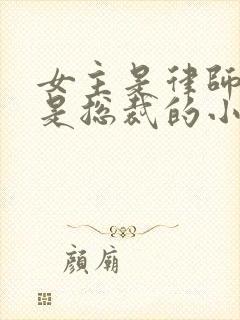 女主是律師
是总裁的小
顏廟